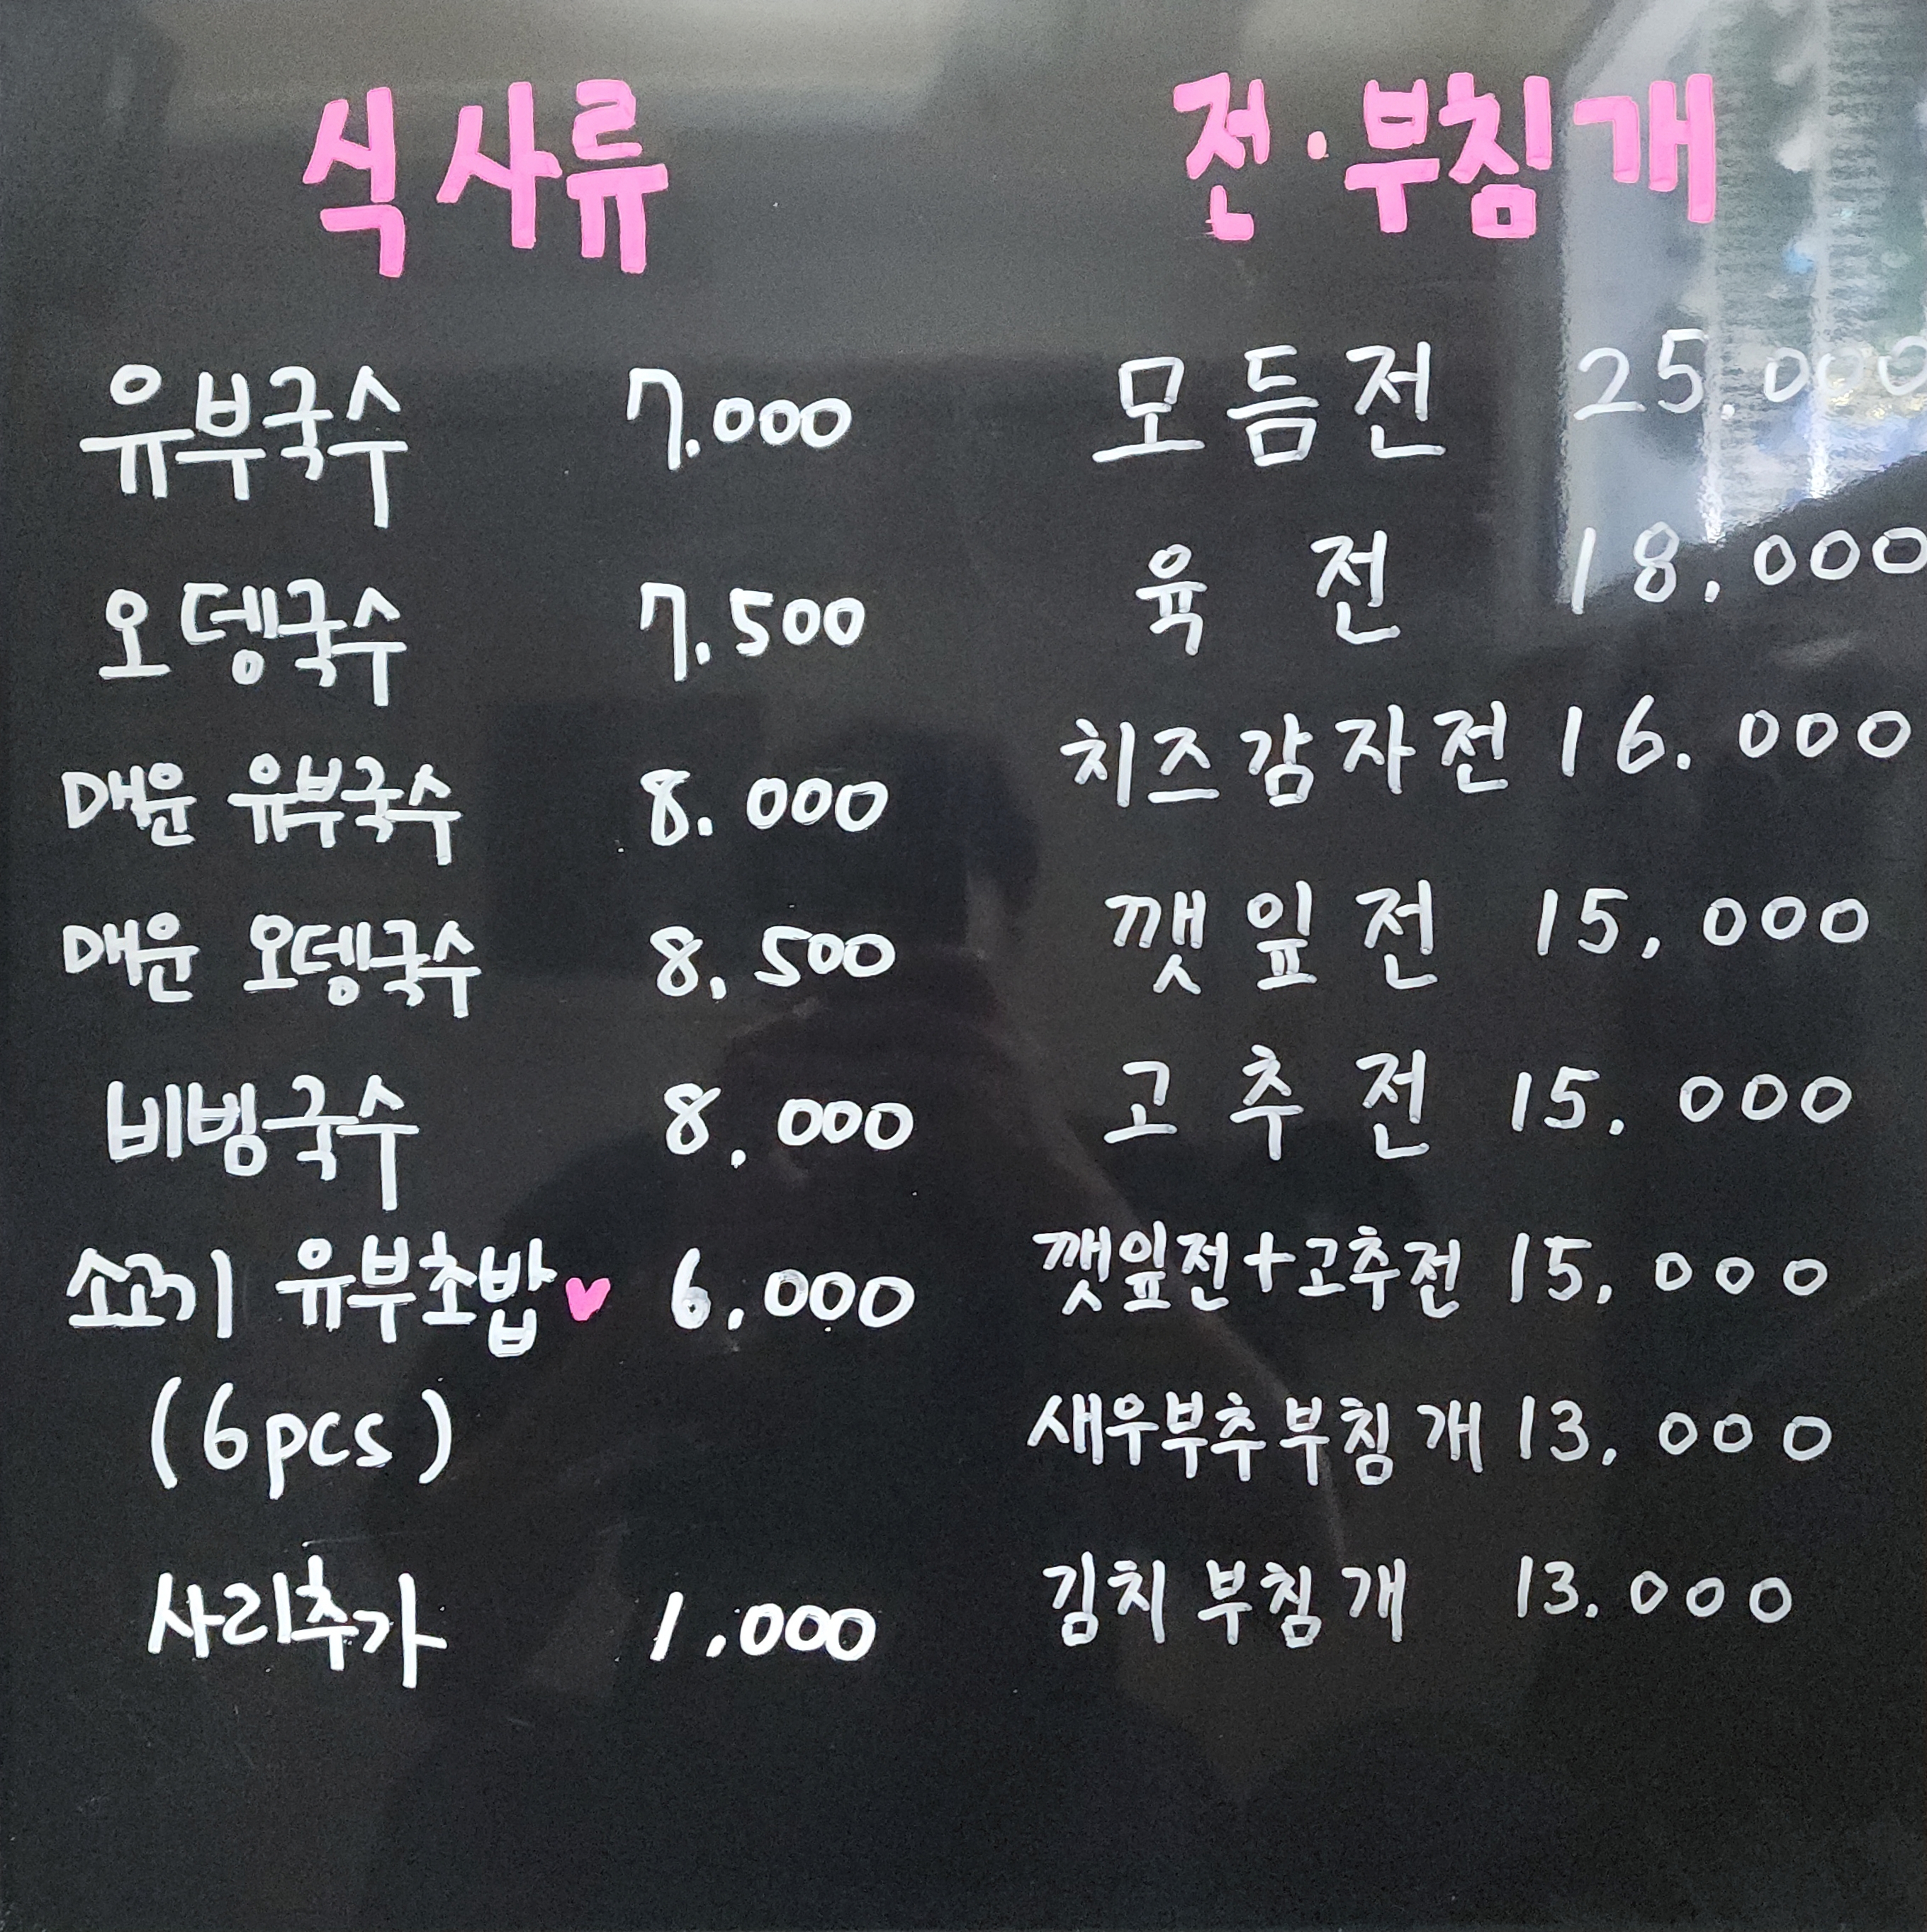 식사류
유부국수 7.000
오뎅국수 7.500
매운 유부국수 8.000
매운 오뎅국수 8,500
비빔국수 8,000
소고기 유부초밥♥ 6,000
(6pcs)
사리추가 1.000
전·부침개
모듬전 25.000
육전 18,000
치즈감자전 16.000
깻잎전 15,000
고추전 15.000
깻잎전+고추전 15,000
새우부추부침개 13,000
김치부침개 13.000